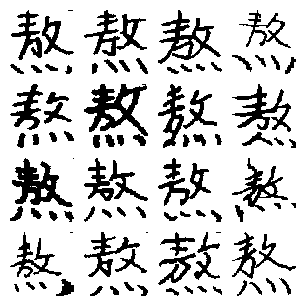 熬熬熬熬
熬熬熬熬
熬熬熬熬
熬熬熬熬